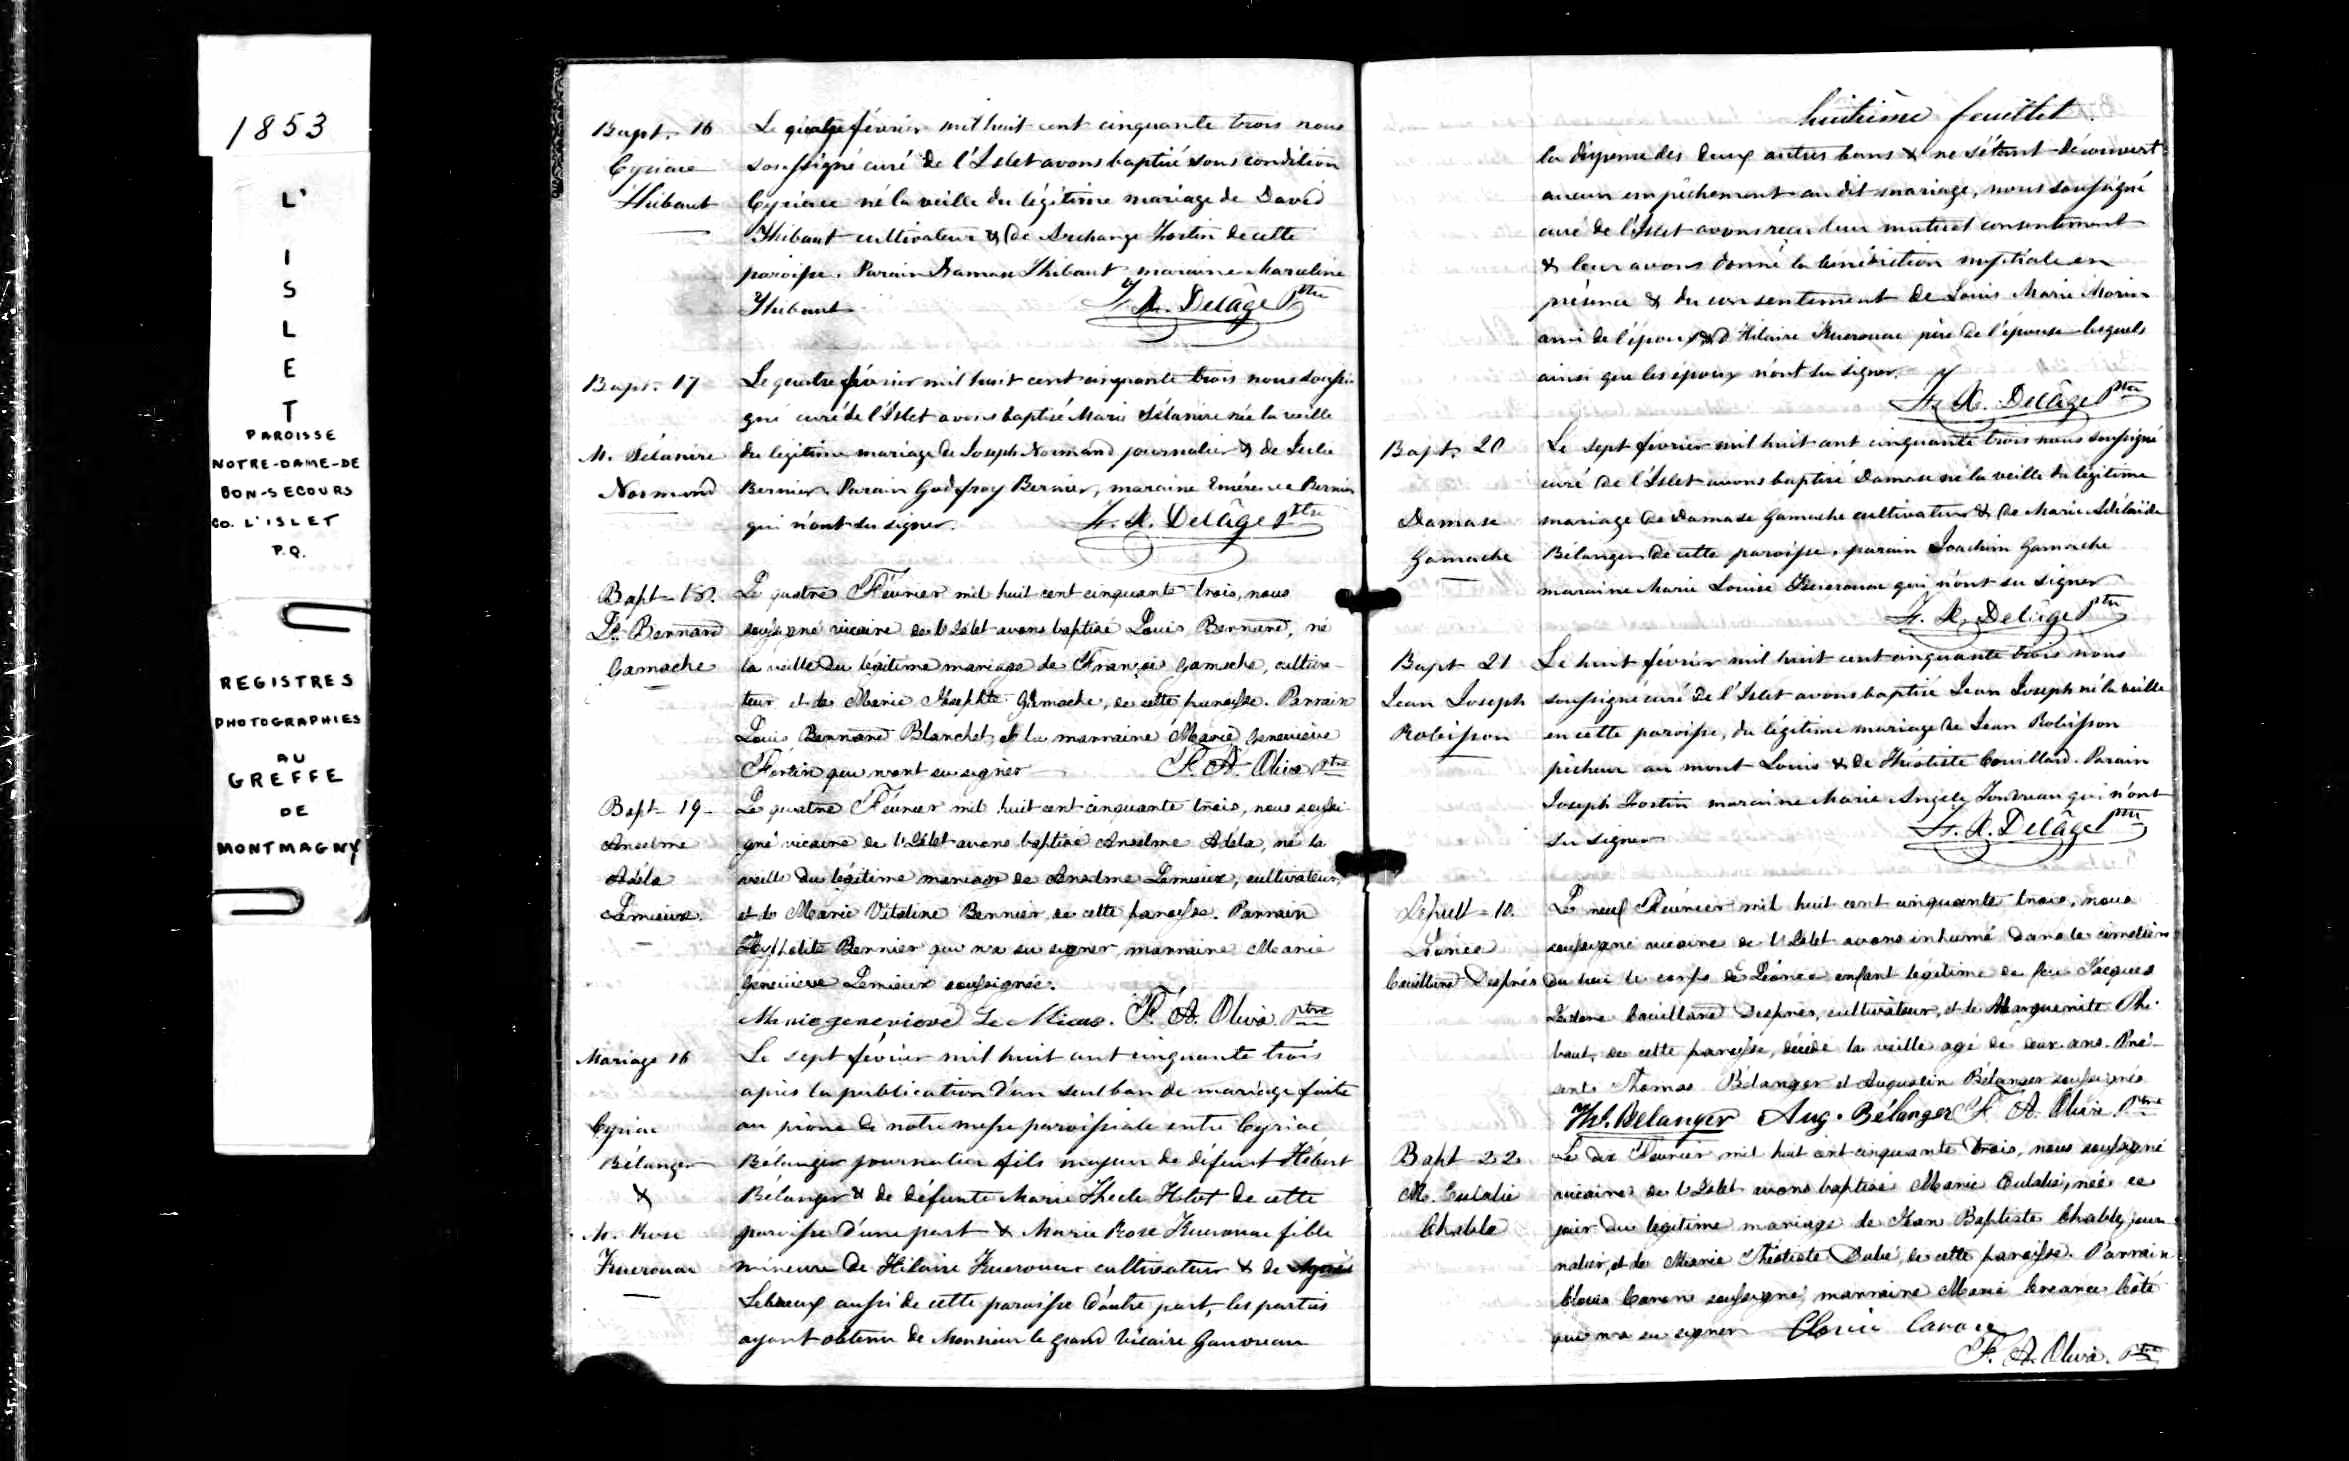 1853
L'
I
S
L
E
T
PAROISSE
NOTRE-DAME-DE
BON-SECOURS
CO. L'ISLET
P.Q.
REGISTRES
PHOTOGRAPHIES
AU
GREFFE
DE
MONTMAGNY
Bapt. 16
Cyriace
Thibaut
Le quatre février mil huit cent cinquante trois nous
soussigné curé de l'Islet avons baptisé sous condition
Cyriace né la veille du légitime mariage de David
Thibaut cultivateur & de Archange Fortin de cette
paroisse. Parain Damase Thibaut maraine Marceline
Thibaut F. X. Delâge Ptre
Bapt. 17
M. Sélanire
Normand
Le quatre février mil huit cent cinquante trois nous soussi
gné curé de l'Islet avons baptisé Marie Sélanire née la veille
du légitime mariage de Joseph Normand journalier & de
Bernier. Parain Godfroy Bernier, maraine Emérence Bernier
qui n'ont su signer. F. X. Delâge Ptre
Bapt - 18.
Ls. Bernard
Gamache
Le quatre Février mil huit cent cinquante trois, nous
soussigné vicaire de l'Islet avons baptisé Louis Bernard, né
la veille du légitime mariage de François Gamache, cultiva-
teur et de Marie Josephte Gamache, de cette paroisse. Parrain
Louis Bernard Blanchet et la marraine Marie Geneviève
Fortin qui n'ont su signer F. A. Oliva Ptre
Bapt - 19 -
Anselme
Adela
Lemieux.
Le quatre Février mil huit cent cinquante trois, nous soussi
gné vicaire de l'Islet avons baptisé Anselme Adela, né la
veille du légitime mariage de Anselme Lemieux, cultivateur,
et de Marie Vitaline Bernier de cette paroisse. Parrain
Hyppolite Bernier qui n'a su signer, marraine Marie
Geneviève Lemieux soussignée.
Marie geneviève Le Mieux. F. A. Oliva Ptre
Mariage 16
Cyriac
Bélanger
&
M. Rose
Kuerouac
Le sept février mil huit cent cinquante trois
après la publication d'un seul ban de mariage faite
au prône de notre messe paroissiale entre Cyriac
Bélanger journalier fils majeur de défunt Hébert
Bélanger & de défunte Marie Thecle de cette
paroisse d'une part & Marie Rose Kuerouac fille
mineure de Hilaire Kuerouac cultivateur & de Agnès
Lebreux aussi de cette paroisse d'autre part, les parties
ayant obtenu de Monsieur le grand Vicaire Gauvreau
huitième feuillet.
la dispense des deux autres bans & ne s'étant découvert
aucun empêchement au dit mariage, nous soussigné
curé de l'Islet avons reçu leur mutuel consentement
& leur avons donné la bénédiction nuptiale en
présence & du consentement de Louis Marie Morin
ami de l'époux & d'Hilaire Kuerouac père de l'épouse lesquels
ainsi que les époux n'ont su signer.
F. X. Delâge Ptre
Bapt. 20
Damase
Gamache
Le sept février mil huit cent cinquante trois nous soussigné
curé de l'Islet avons baptisé Damase né la veille du légitime
mariage de Damase Gamache cultivateur & de Marie Adélaïde
Bélanger de cette paroisse, parain Joachim Gamache
maraine Marie Louise Kuerouac qui n'ont su signer
F. X. Delâge Ptre
Bapt 21
Jean Joseph
Robisson
Le huit février mil huit cent cinquante trois nous
soussigné curé de l'Islet avons baptisé Jean Joseph né la veille
en cette paroisse, du légitime mariage de Jean Robisson
pêcheur au mont Louis & de Théotiste Couillard. Parain
Joseph Fortin maraine Marie Angèle qui n'ont
su signer F. X. Delâge Ptre
Sépult - 10.
Léonce
Couillard Després
Le neuf Février mil huit cent cinquante trois, nous
soussigné vicaire de l'Islet avons inhumé dans le cimetière
du lieu le corps de Léonce enfant légitime de feu Jacques
Couillard Després, cultivateur, et de Marguerite Thi-
baut, de cette paroisse, décédé la veille agé de deux ans. Pré-
sents Thomas Bélanger et Augustin Bélanger soussignés
Th. Bélanger Aug. Bélanger F. A. Oliva Ptre
Bapt 22
M. Eulalie
Chable
Le dix Février mil huit cent cinquante trois, nous soussigné
vicaire de l'Islet avons baptisé Marie Eulalie, née ce
jour du légitime mariage de Jean Baptiste Chable, jour
nalier, et de Marie Théotiste Dubé, de cette paroisse. Parrain
Caron soussigné, marraine Marie Côté
qui n'a su signer Caron
F. A. Oliva. Ptre